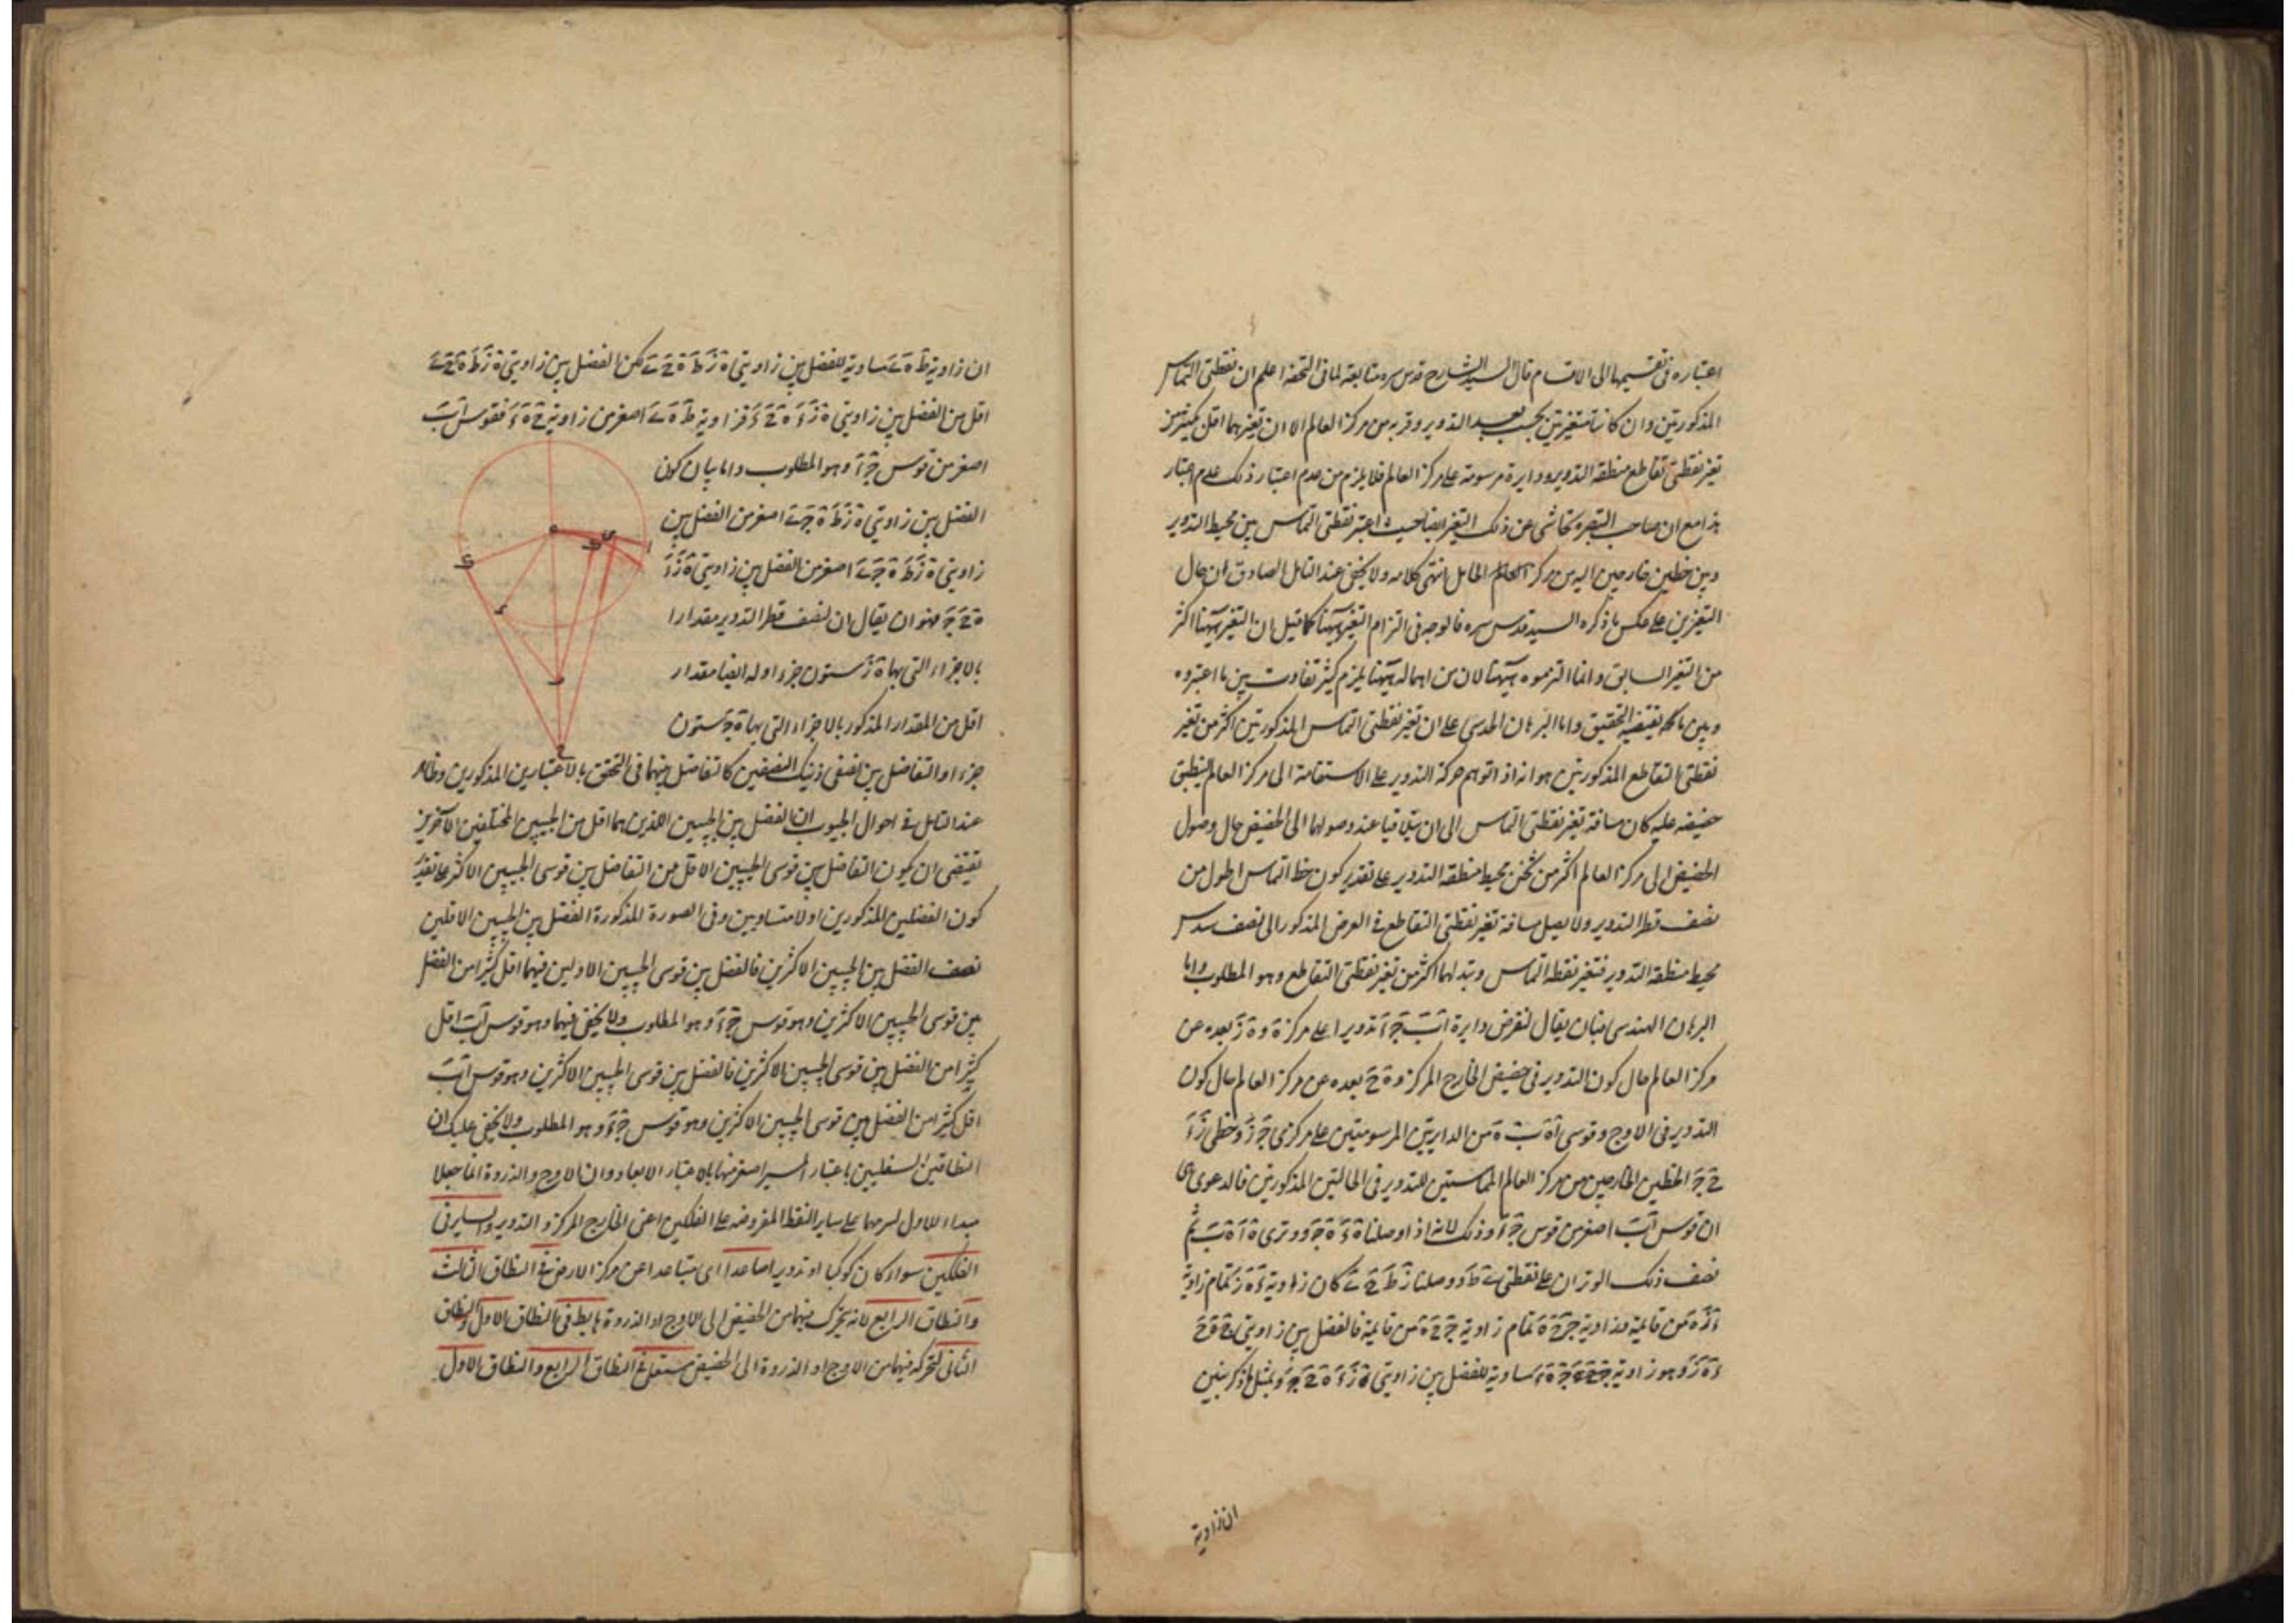 اعتباره فى تقسيمها الى الاقسام قال السيد الشارح قدس سره متابعة لما فى التحفة اعلم ان نقطتى التماس
المذكورتين وان كانتا متغيرتين بحسب بعد التدوير وقربه من مركز العالم الا ان تغيرهما اقل بكثير من
تغير نقطتى تقاطع منطقة التدوير ودايرة مرسومة على مركز العالم فلا يلزم من عدم اعتبار ذلك عدم اعتبار
هذا مع ان صاحب التبصرة تحاشى عن ذلك التغير ايضا حيث اعتبر نقطتى التماس بين محيط التدوير
وبين خطين خارجين اليه من مركز الحامل المايل انتهى كلامه ولا يخفى عند التامل الصادق ان حال
التغيرين على عكس ما ذكره السيد قدس سره فالوجه فى التزام التغير ههنا كما قيل ان التغير ههنا اكثر
من التغير السابق وانما التزموه ههنا لان من اهماله ههنا يلزم كثير تفاوت بين ما اعتبروه
وبين ما يقتضيه التحقيق واما البرهان الحدسى على ان تغير نقطتى التماس المذكورتين اكثر من تغير
نقطتى التقاطع المذكورتين هو انه اذا توهم حركة التدوير على الاستقامة الى مركز العالم لينطبق
حضيضه عليه كان مسافة تغير نقطتى التماس الى ان يتلاقيا عند وصولهما الى الحضيض حال وصول
الحضيض الى مركز العالم اكثر من ثمن محيط منطقة التدوير على تقدير كون خط التماس اطول من
نصف قطر التدوير ولا يصل مسافة تغير نقطتى التقاطع فى العرض المذكور الى نصف سدس
محيط منطقة التدوير فتغير نقطة التماس وتبدلهما اكثر من تغير نقطتى التقاطع وهو المطلوب واما
البرهان الهندسى فبان يقال لنفرض دايرة اب ج تدويرا على مركز ه و ه ز بعده عن
مركز العالم حال كون التدوير فى حضيض الخارج المركز و ه ح بعده عن مركز العالم حال كون
التدوير فى الاوج وقوسى من الدايرتين المرسومتين على مركزى ح ز وخطى ز
الخطين الخارجين من مركز العالم المماستين للتدوير فى الحالتين المذكورتين فالدعوى
ان قوس اب اصغر من قوس ج وذلك لانه اذا وصلنا ووترى ثم
نصف ذلك الوتران على نقطتى ووصلنا كان زاوية تمام زاوية
من قايمة وزاوية تمام زاوية من قايمة فالفضل بين زاويتى
وهو زاوية مساوية للفضل بين زاويتى وبمثل ما ذكر نبين
ان زاوية
ان زاوية ط ه ى مساوية للفضل بين زاويتى ه ز ط ه ح ى لكن الفضل بين زاويتى ه ز ط ه ح ى
اقل من الفضل بين زاويتى فزاوية ط ه ى اصغر من زاوية فقوس اب
اصغر من قوس وهو المطلوب واما بيان كون
الفضل بين زاويتى ه ز ط ه ح ى اصغر من الفضل بين
زاويتى ه ز ط ه ح ى اصغر من الفضل بين زاويتى
فهو ان يقال ان لنصف قطر التدوير مقدارا
بالاجزاء التى بها ه ز ستون جزءا وله ايضا مقدار
اقل من المقدار المذكور بالاجزاء التى بها ه ح ستون
جزءا والتفاضل بين نصفى ذينك النصفين كالتفاضل بينهما فى التحقق بالاعتبارين المذكورين وظاهر
عند التامل فى احوال الجيوب ان الفضل بين الجيبين الذين هما اقل من الجيبين المختلفين الاخرين
يقتضى ان يكون التفاضل بين قوسى الجيبين الاقل من التفاضل بين قوسى الجيبين الاكثر على تقدير
كون الفضلين المذكورين اولا متساويين وفى الصورة المذكورة الفضل بين الجيبين الاقلين
نصف الفضل بين الجيبين الاكثرين فالفضل بين قوسى الجيبين الاولين فيهما اقل كثيرا من الفضل
بين قوسى الجيبين الاكثرين وهو قوس وهو المطلوب ولا يخفى فيهما وهو قوس اب اقل
كثيرا من الفضل بين قوسى الجيبين الاكثرين فالفضل بين قوسى الجيبين الاكثرين وهو قوس اب
اقل كثيرا من الفضل بين قوسى الجيبين الاكثرين وهو قوس وهو المطلوب ولا يخفى عليك ان
النطاقين السفليين باعتبار المسير اصغر منهما بالاعتبار الابعاد وان الاوج والذروة انما جعلا
مبداء للاول لشرفهما على ساير النقط المفروضة على الفلكين اعنى الخارج المركز والتدوير والساير فى
الفلكين سواء كان كوكبا او تدويرا صاعدا اى متباعدا عن مركز الارض فى النطاق الثالث
والنطاق الرابع لانه يتحرك فيهما من الحضيض الى الاوج او الذروة هابط فى النطاق الاول والنطاق
الثانى لتحركه فيهما من الاوج او الذروة الى الحضيض مستعل فى النطاق الرابع والنطاق الاول